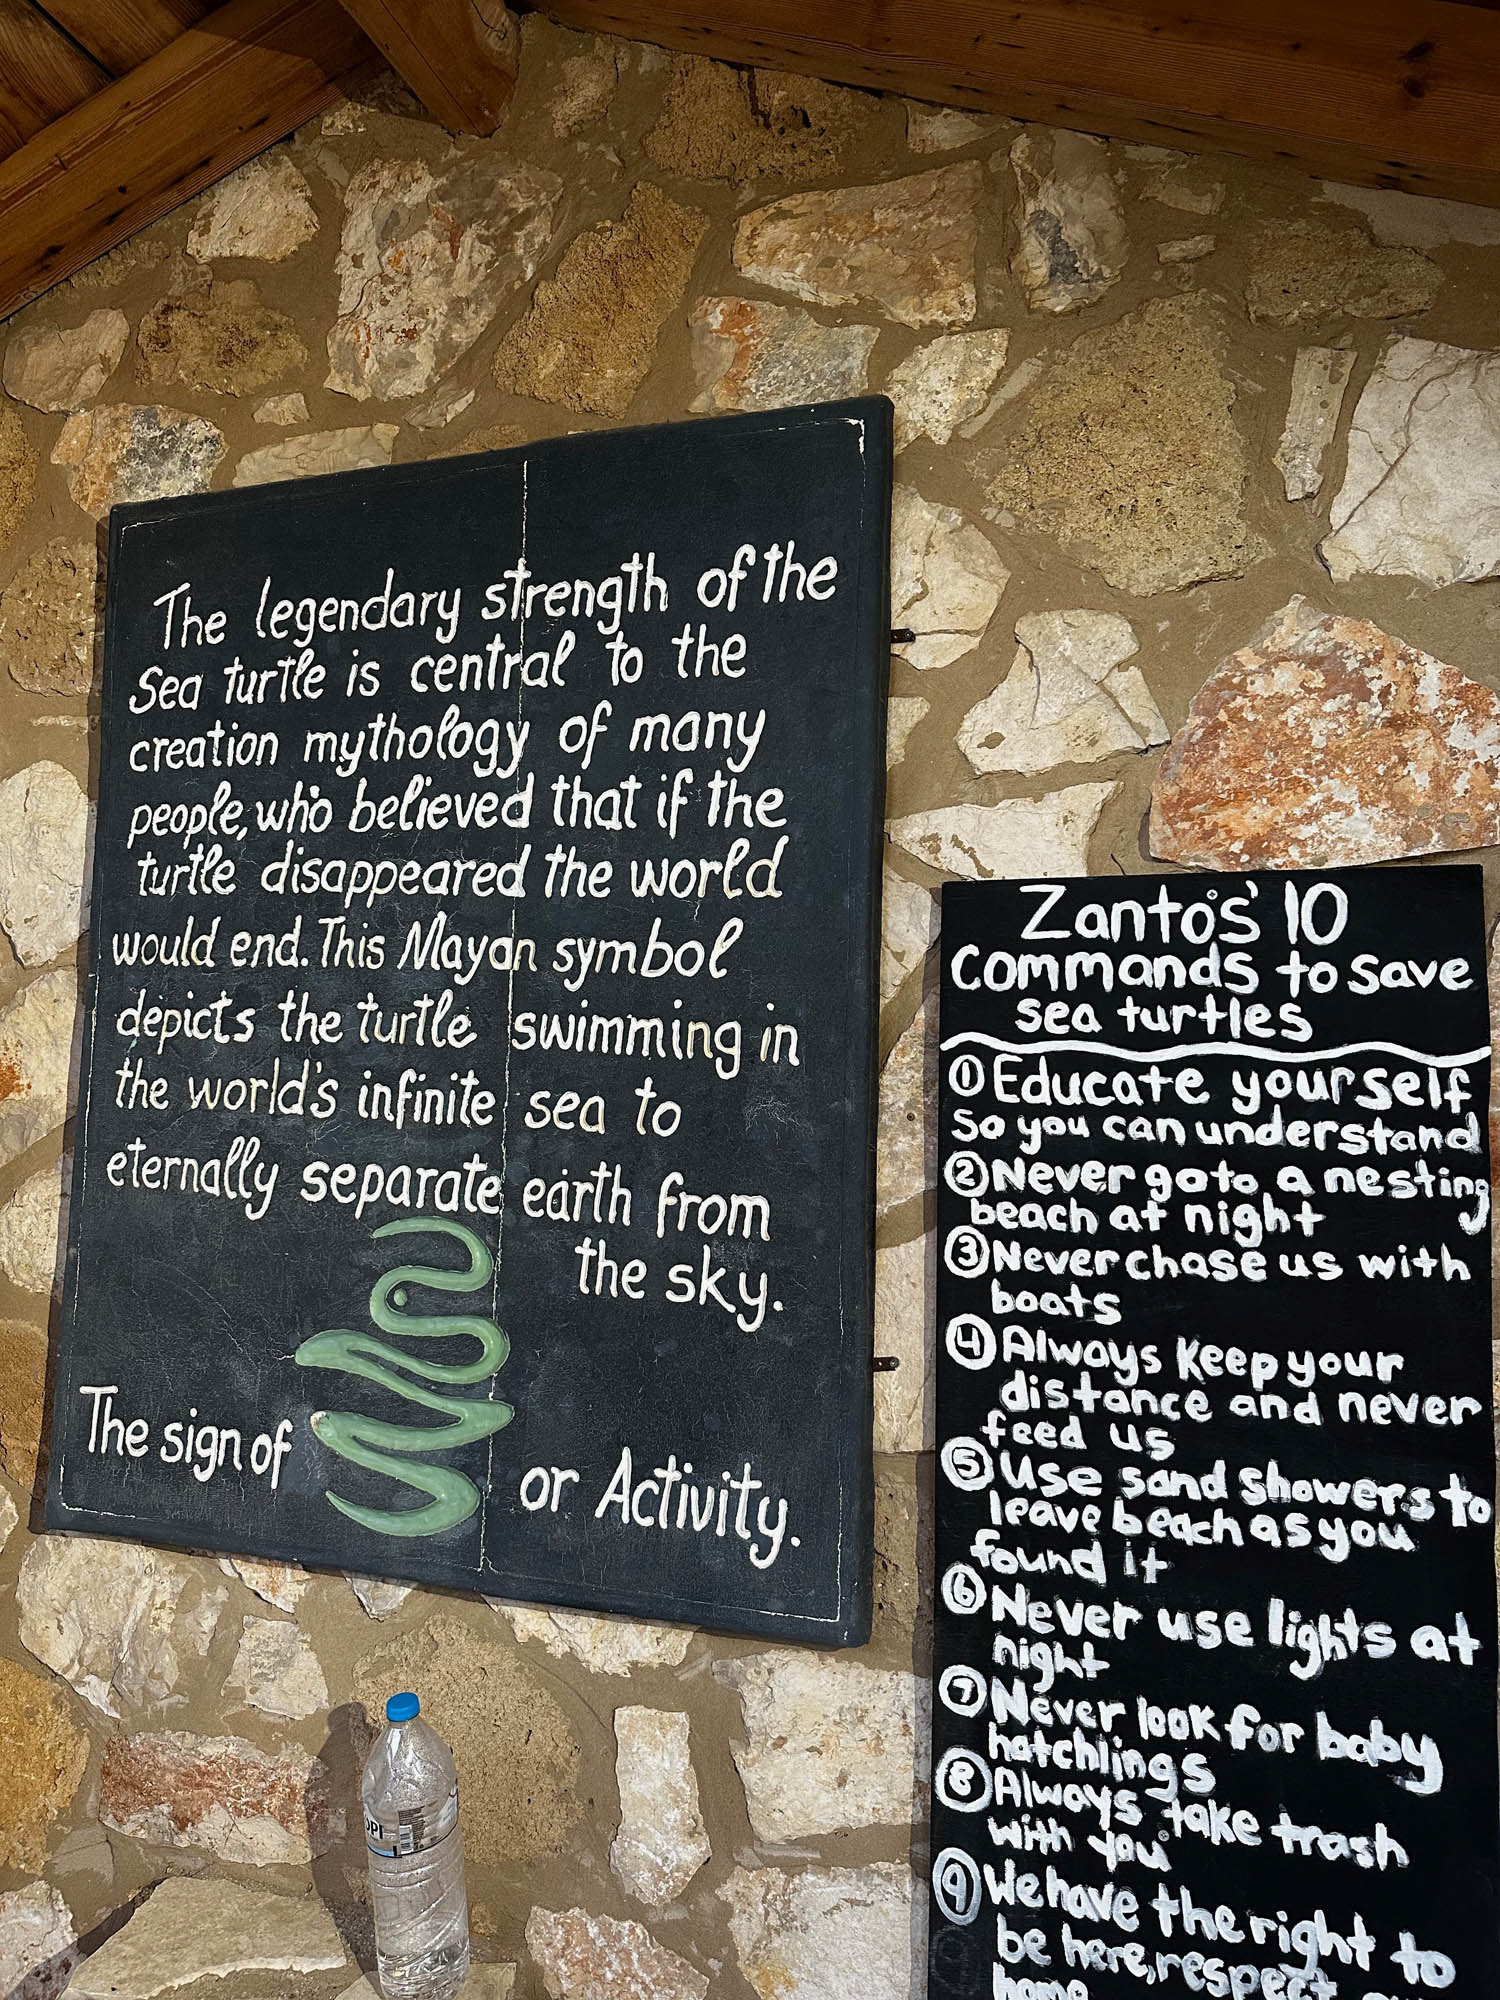 The legendary strength of the
Sea turtle is central to the
creation mythology of many
people, who believed that if the
turtle disappeared the world
would end. This Mayan symbol
depicts the turtle swimming in
the world's infinite sea to
eternally separate earth from
the sky.
The sign of
or Activity.
Zantos' 10
Commands to save
sea turtles
① Educate yourself
so you can understand
② Never go to a nesting
beach at night
③ Never chase us with
boats
④ Always keep your
distance and never
feed us
⑤ Use sand showers to
leave beach as you
found it
⑥ Never use lights at
night
⑦ Never look for baby
hatchlings
⑧ Always take trash
with you
⑨ We have the right to
be here, respect
home